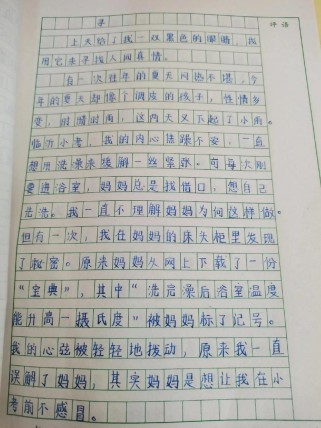 评语
上天给了我一双黑色的眼睛，我
用它来寻找人间真情。
有一次往年的夏天闷热不堪，今
年的夏天却像个调皮的孩子，性情多
变，时晴时雨，这两天又下起了小雨。
临近小考，我的内心焦躁不安，一直
想用洗澡来缓解一丝紧张。可每次刚
要进浴室，妈妈总是找借口，想自己
先洗。我一直不理解妈妈为何这样做。
但有一次，我在妈妈的床头柜里发现
了秘密。原来妈妈从网上下载了一份
“宝典”，其中“洗完澡后浴室温度
能升高一摄氏度”被妈妈标了记号。
我的心弦被轻轻地拨动，原来我一直
误解了妈妈，其实妈妈是想让我在小
考前不感冒。